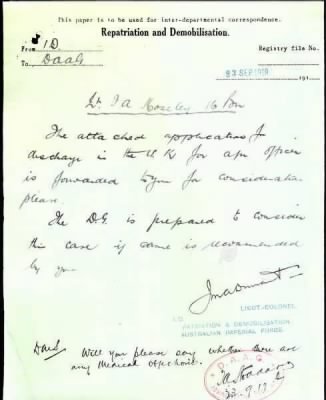 This paper is to be used for inter-departmental correspondence.
Repatriation and Demobilisation.
From 1D.
Registry file No.
To DAAG
23 SEP 1919
191
Lt. J A Moseley 16 Bn
The attached application for
discharge in the U K for a/m officer
is forwarded to you for consideration
please.
The D.G. is prepared to consider
this case if same is recommended
by you
LIEUT-COLONEL
REPATRIATION & DEMOBILISATION
AUSTRALIAN IMPERIAL FORCE.
DMS Will you please say whether there are
any medical objections.
D.A.A.G.
23.9.19